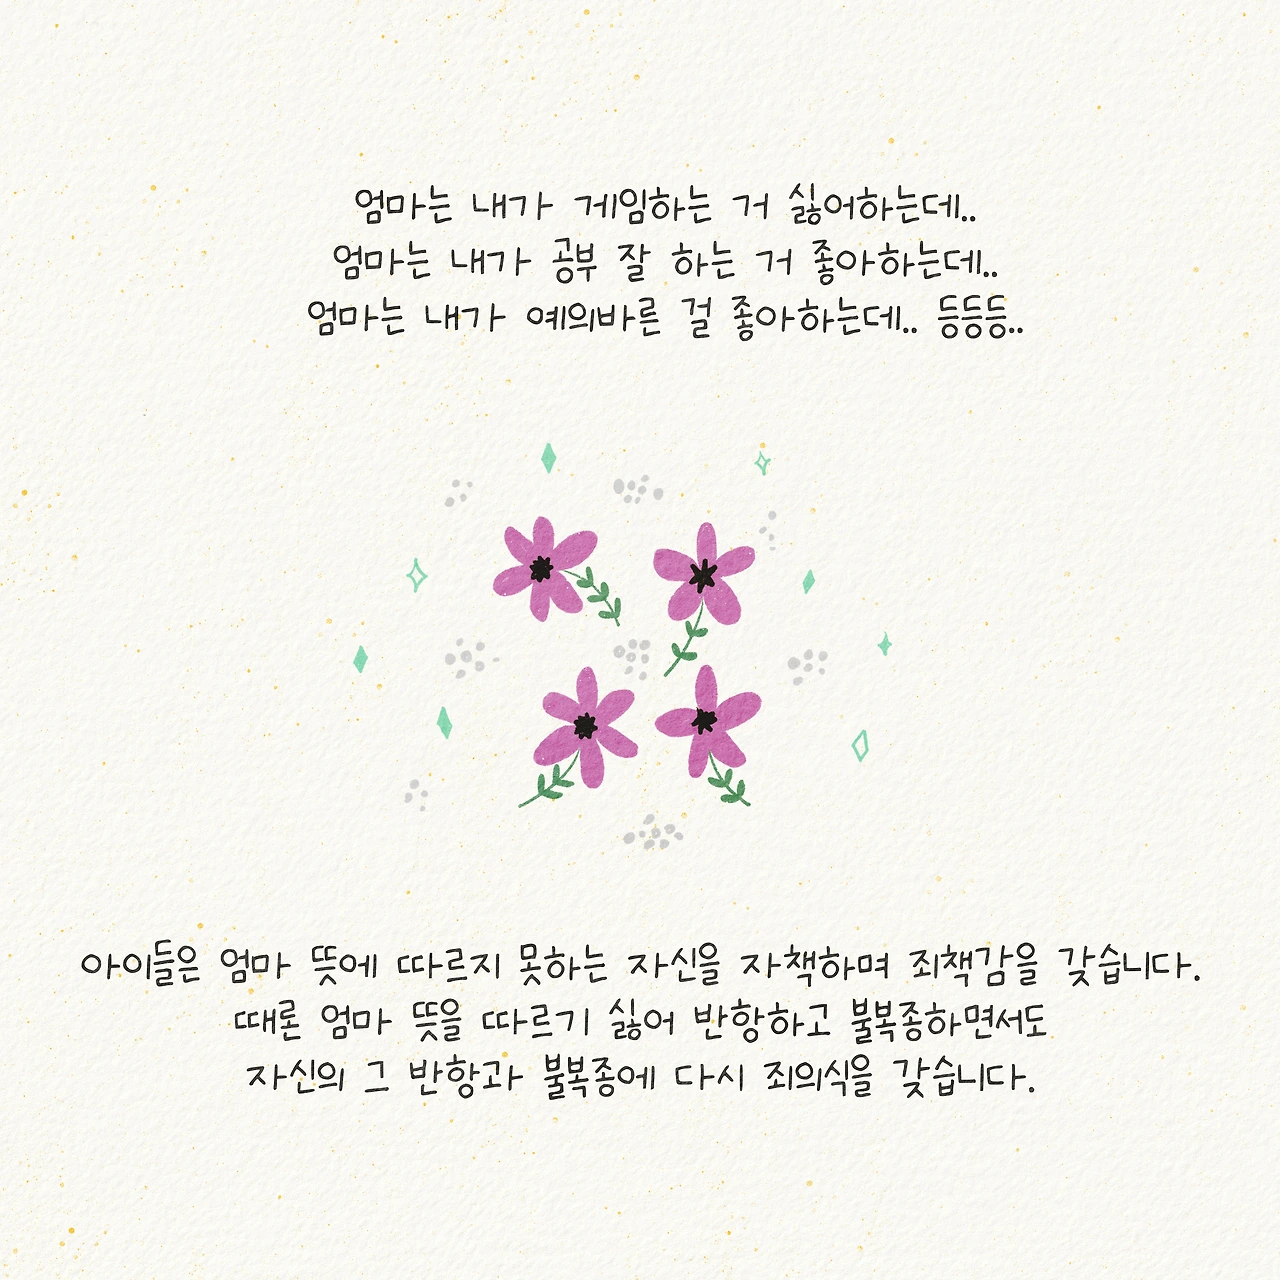 엄마는 내가 게임하는 거 싫어하는데..
엄마는 내가 공부 잘 하는 거 좋아하는데..
엄마는 내가 예의바른 걸 좋아하는데.. 등등등..
아이들은 엄마 뜻에 따르지 못하는 자신을 자책하며 죄책감을 갖습니다.
때론 엄마 뜻을 따르기 싫어 반항하고 불복종하면서도
자신의 그 반항과 불복종에 다시 죄의식을 갖습니다.